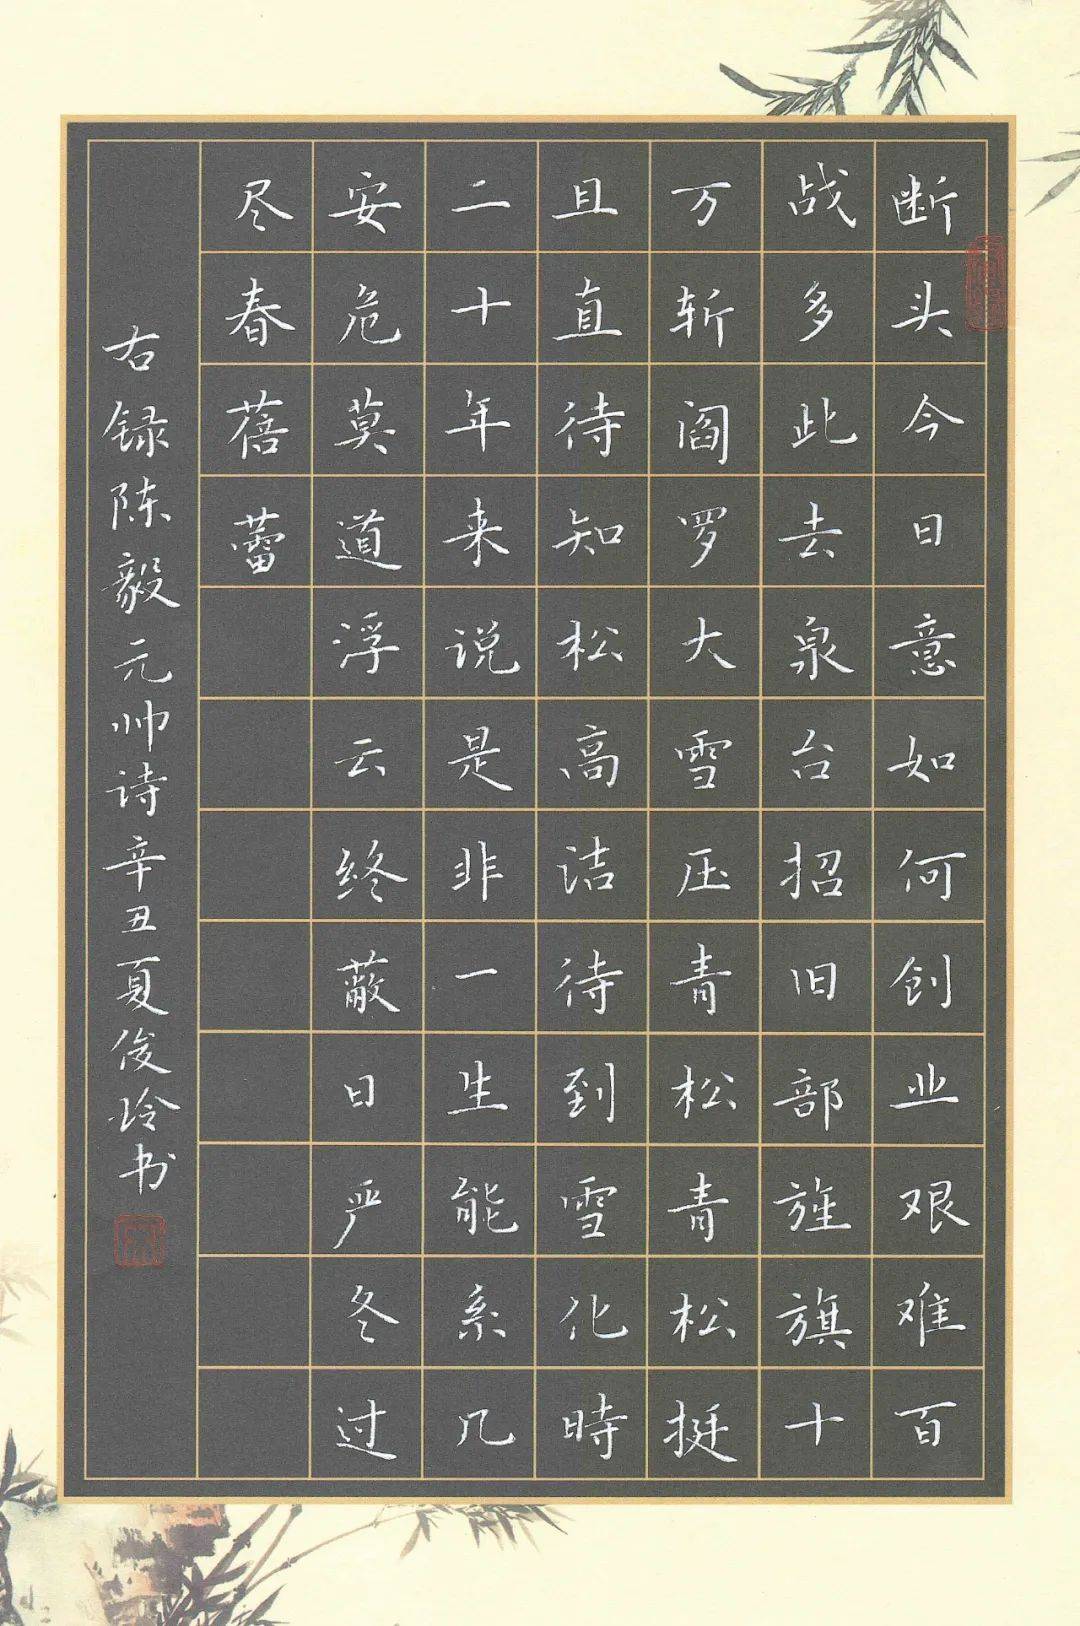 断头今日意如何创业艰难百
战多此去泉台招旧部旌旗十
万斩阎罗大雪压青松青松挺
且直待知松高诘待到雪化時
二十年来说是非一生能系几
安危莫道浮云终蔽日严冬过
尽春蓓蕾
右録陈毅元帅诗辛丑夏俊玲书